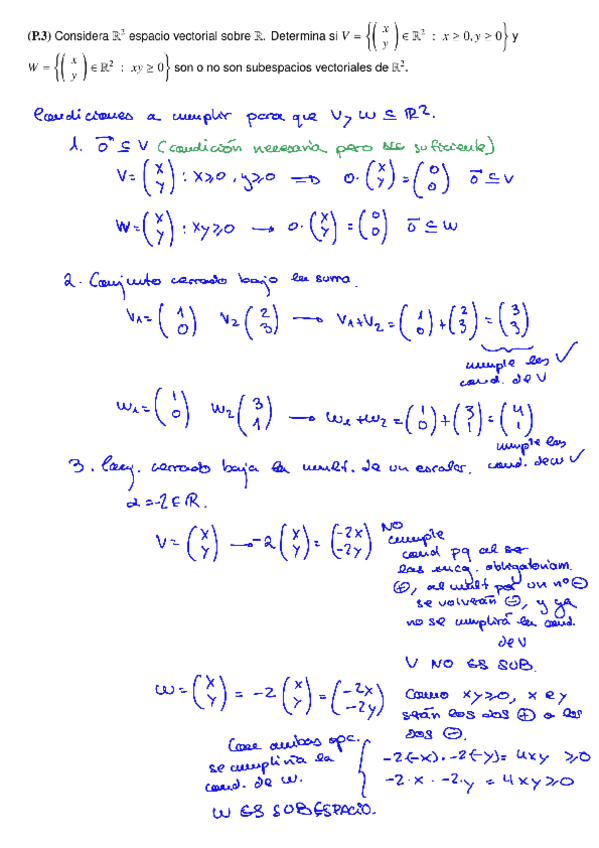 (P.3) Considera ℝ² espacio vectorial sobre ℝ. Determina si V = {(x y) ∈ ℝ² : x ≥ 0, y ≥ 0} y
W = {(x y) ∈ ℝ² : xy ≥ 0} son o no son subespacios vectoriales de ℝ².
Condiciones a cumplir para que V y W ⊆ ℝ².
1. 0⃗ ⊆ V (condición necesaria pero suficiente)
V = (x y) : x≥0, y≥0 ⟹ 0·(x y) = (0 0) 0⃗ ⊆ V
W = (x y) : xy≥0 → 0·(x y) = (0 0) 0⃗ ⊆ W
2. Conjunto cerrado bajo la suma.
V1 = (1 0) V2 (2 3) → V1+V2 = (1 0) + (2 3) = (3 3)
cumple las ✓
cond. de V
W1 = (1 0) W2 (3 1) → W1+W2 = (1 0) + (3 1) = (4 1)
cumple las
cond. de W ✓
3. Conj. cerrado baja la mult. de un escalar.
α = -2 ∈ ℝ.
V = (x y) → -2 (x y) = (-2x -2y)
NO
cumple
cond pq al ser
las incog. obligatoriam.
⊕, al mult por un nº ⊖
se volverán ⊖, y ya
no se cumplirá la cond.
de V
V NO ES SUB.
W = (x y) = -2 (x y) = (-2x -2y)
Como xy≥0, x e y
serán los dos ⊕ o los
dos ⊖.
Con ambas opc.
se cumpliría la
cond. de W.
{ -2(-x) · -2(-y) = 4xy ≥0
-2·x · -2·y = 4xy≥0
W ES SUBESPACIO.